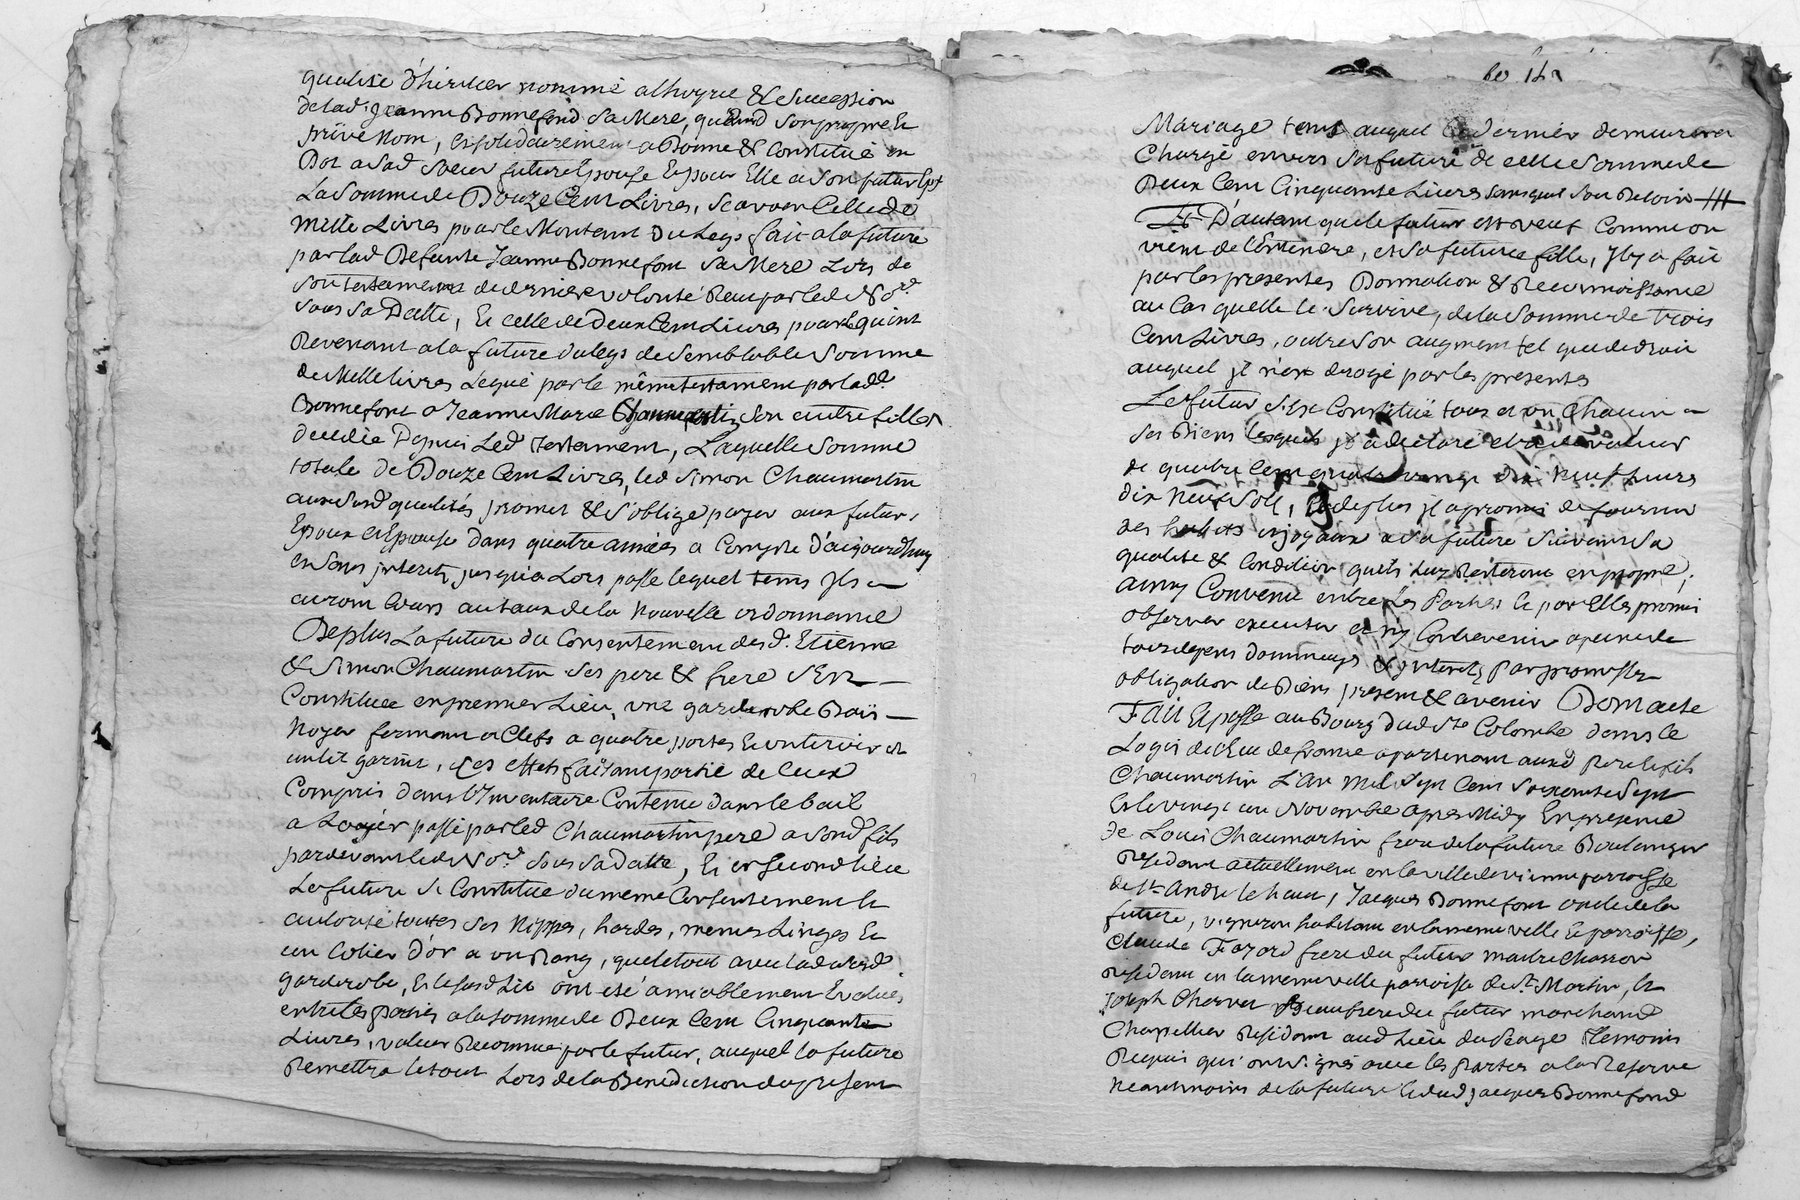 qualité d'héritier nommé alhoyrie & succession
delad. Jeanne Bonnefond sa Mere, quand son propre Et
privé Nom, Et solidairement a Donné & Constitué en
Dot a sad. soeur future Epouse Et pour Elle a son futur Epx
La somme de Douze Cent Livres, scavoir Celle de
Mille Livres pour le Montant du Legs fait a la future
par lad Defunte Jeanne Bonnefont sa Mere Lors de
son testament de derniere volonté Reçu par led No.re
sous sa Datte, Et celle de Deux Cent Livres pour le quint
Revenant a la future du legs de semblable somme
de Mille livres Legué par le même testament par lad.
Bonnefont a Jeanne Marie Chaumartin son autre fille
decedée Depuis Led. testament, Laquelle somme
totale de Douze Cent Livres, led Simon Chaumartin
aux susd. qualités promet & s'oblige payer aux futurs
Epoux et Epouse dans quatre années a Compter d'aujourdhuy
et sans interetz jusqu'a Lors passe lequel tems Ils en
auront Cours au taux de la Nouvelle ordonnance
De plus La future du Consentement des d. Etienne
& Simon Chaumartin ses pere & frere s'Est
Constituée en premier Lieu, une garderobe Bois
Noyer fermant a Clefs a quatre portes Et un tiroir et
un lit garni, Les effets faisant partie de Ceux
Compris dans l'Inventaire Contenu dans le bail
a Loyer passé par led Chaumartin pere a sond. fils
pardevant led No.re sous sa Datte, Et en second lieu
La future se Constitue du meme Consentement Et
autorité toutes ses Nippes, hardes, menus Linges Et
un Colier d'or a un Rang, que le tout avec lad. susd.
garderobe, Et le susd Lit ont eté amiablement Evalués
entre les parties a la somme de Deux Cent Cinquante
Livres, valeur Reconnue par le futur, auquel la future
Remettra le tout Lors de la Benediction du present
Mariage tems auquel Ce dernier demeurera
Chargé envers sa future de celle somme de
Deux Cent Cinquante Livres sans que son besoin
Et D'autant que le futur est veuf Comme on
vient de l'Entendre, et sa future fille, Il y a fait
par les presentes Donnation & Reconnoissance
au Cas quelle le Survive, de la somme de trois
Cent Livres, outre son augment tel que de droit
auquel il n'est derogé par les presentes
Le futur s'est Constitué tous et un Chacun
ses Biens lesquels il a declaré etre de valeur
de quatre Cent quatre vingt dix neuf Livres
dix neuf sols, Et de plus il a promis de fournir
des habits et joyaux a sa future suivant sa
qualité & Condition quels luy Resteront en propre,
ainsy Convenu entre Les Parties Et par Elles promis
observer executer et n'y Contrevenir a peine de
tous depens dommages & interetz par promesse
obligation de Biens present & avenir Dont acte
Fait Et passé au Bourg dud Ste Colombe dans le
Logis de l'Ecu de france apartenant auxd Pere Et fils
Chaumartin L'an Mil Sept Cent Soixante Sept
Et le vingt un Novembre apres Midy En presence
de Louis Chaumartin frere de la future Boulanger
Residant actuellement en la ville de vienne parroisse
de St André le haut, Jacques Bonnefont oncle de la
future, vigneron habitant en la meme ville Et parroisse,
Claude Fayard frere du futur maitre Charron
Residant en la meme ville parroisse de St Martin, Et
Joseph Chervet Beaufrere du futur marchand
Chapellier Residant aud Lieu du Péage Temoins
Requis qui ont signés avec les Parties a la Reserve
Neantmoins de la future Et dud Jacques Bonnefond